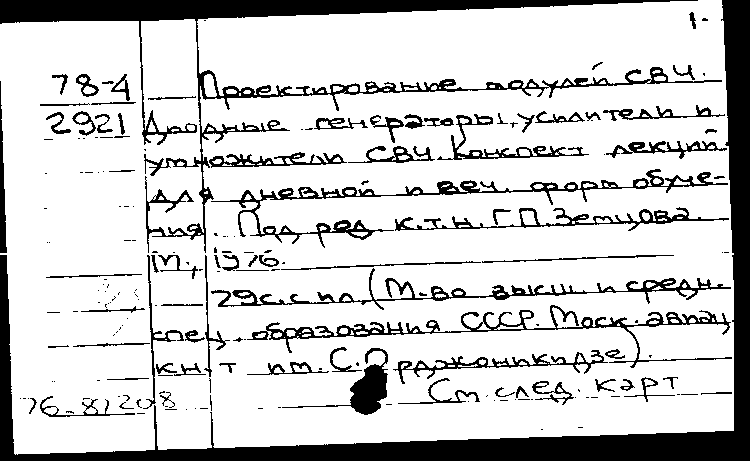 1.
78-4 Проектирование модулей СВЧ.
2921 Диодные генераторы, усилители и
умножители СВЧ. Конспект лекций
для дневной и веч. форм обуче-
ния. Под ред. к.т.н. Г.П. Земцова.
М., 1976.
79с. с ил. (М-во высш. и средн.
спец. образования СССР. Моск. авиац.
ин-т им. С. Орджоникидзе).
76-81208 См. след. карт